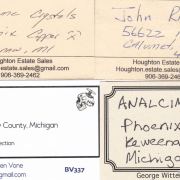 Crystals
Copper
MI
Houghton Estate Sales
estate.sales@gmail.com
906-369-2462
John R
56622
Calumet,
Houghton Estate Sales
Houghton.estate.sales@gmail.com
906-369-24
County, Michigan
ection
en Vane
@gmail.com
BV337
ANALCIM
Phoenix
Keweena
Michiga
George Wittel